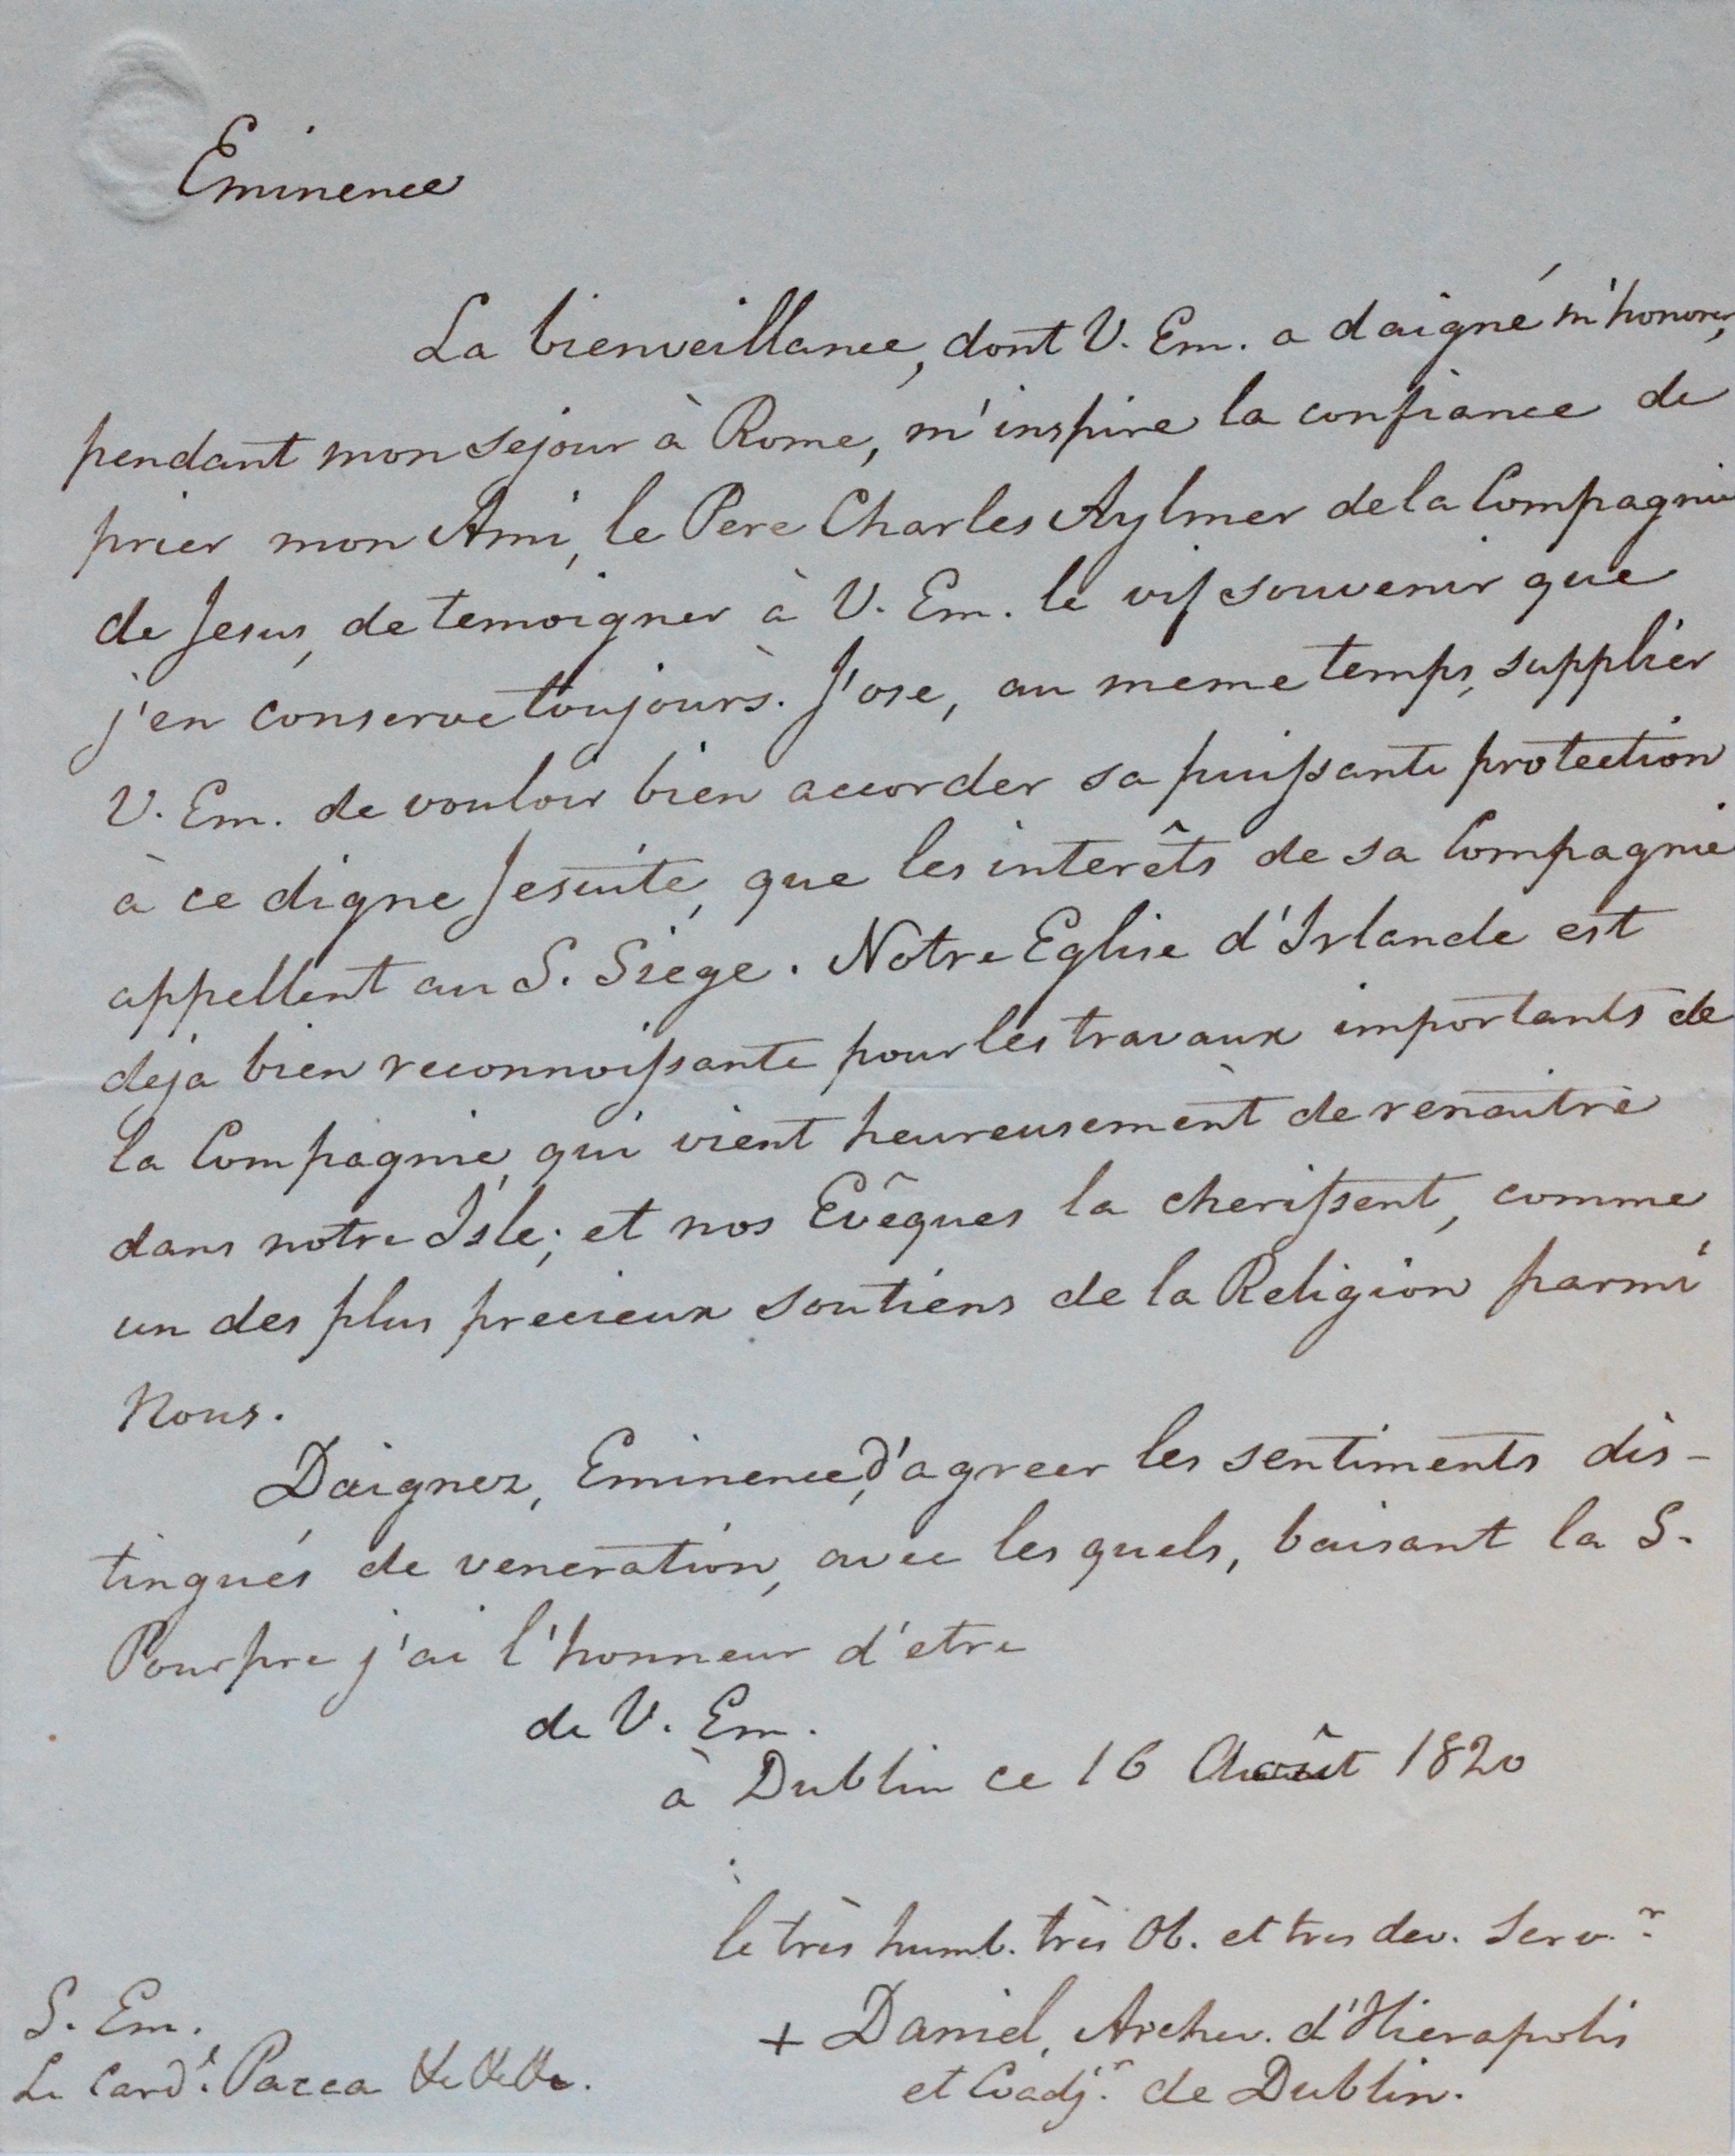 Eminence
La bienveillance, dont V. Em. a daigné m'honorer,
pendant mon sejour à Rome, m'inspire la confiance de
prier mon Ami, le Pere Charles Aylmer de la Compagnie
de Jesus, de temoigner à V. Em. le vif souvenir que
j'en conserve toujours. J'ose, au meme temps, supplier
V. Em. de vouloir bien accorder sa puissante protection
à ce digne Jesuite, que les interêts de sa Compagnie
appellent au S. Siege. Notre Eglise d'Irlande est
deja bien reconnoissante pour les travaux importants de
la Compagnie, qui vient heureusement de renaitre
dans notre Isle; et nos Evêques la cherissent, comme
un des plus precieux soutiens de la Religion parmi
Nous.
Daignez, Eminence, d'agreer les sentiments dis-
tingués de veneration, avec les quels, baisant la S.
Pourpre j'ai l'honneur d'etre
de V. Em.
à Dublin ce 16 Août 1820
le très humb. très Ob. et tres dev. Servr
+ Daniel, Archev. d'Hierapolis
et Coadjr. de Dublin.
S. Em.
Le Cardl. Pacca &c &c &c.